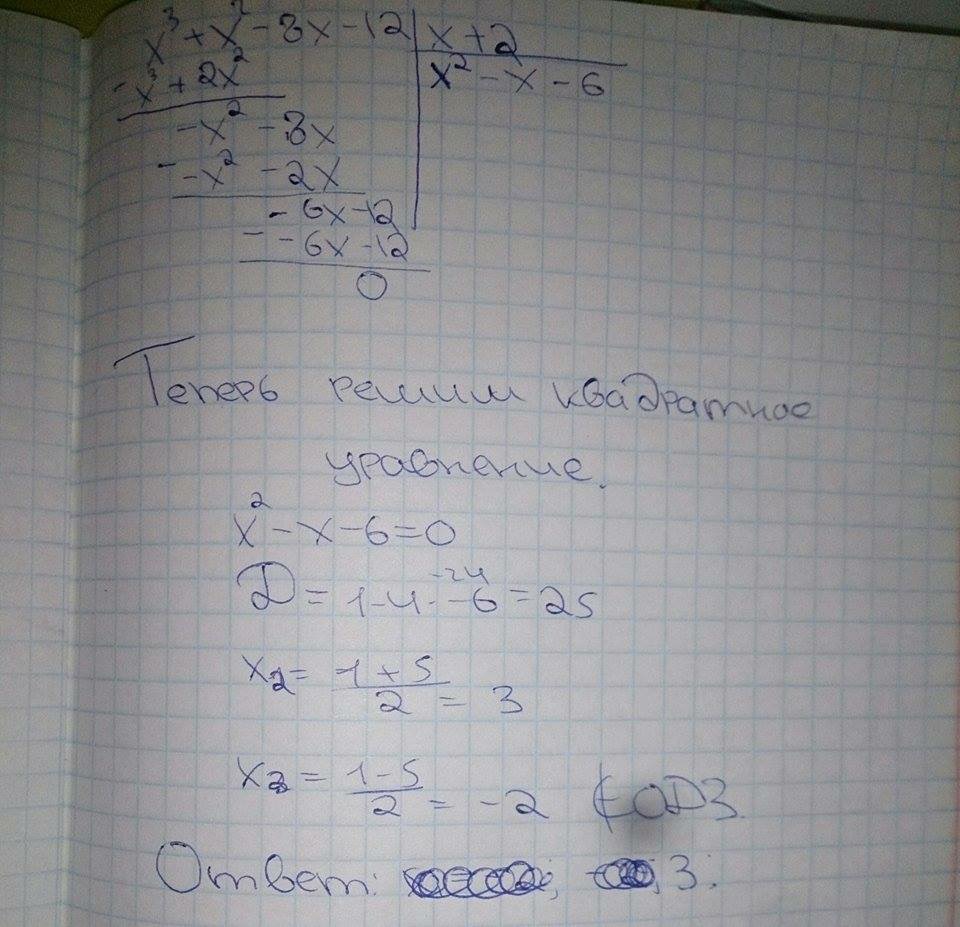 x³ + x² - 8x - 12 | x + 2
- x³ + 2x² | x² - x - 6
- x² - 8x
- - x² - 2x
- 6x - 12
- - 6x - 12
0
Теперь решим квадратное
уравнение.
x² - x - 6 = 0
-24
D = 1 - 4 · -6 = 25
x₂ = 1 + 5 / 2 = 3
x₂ = 1 - 5 / 2 = -2 ∉ ОДЗ.
Ответ: 3.